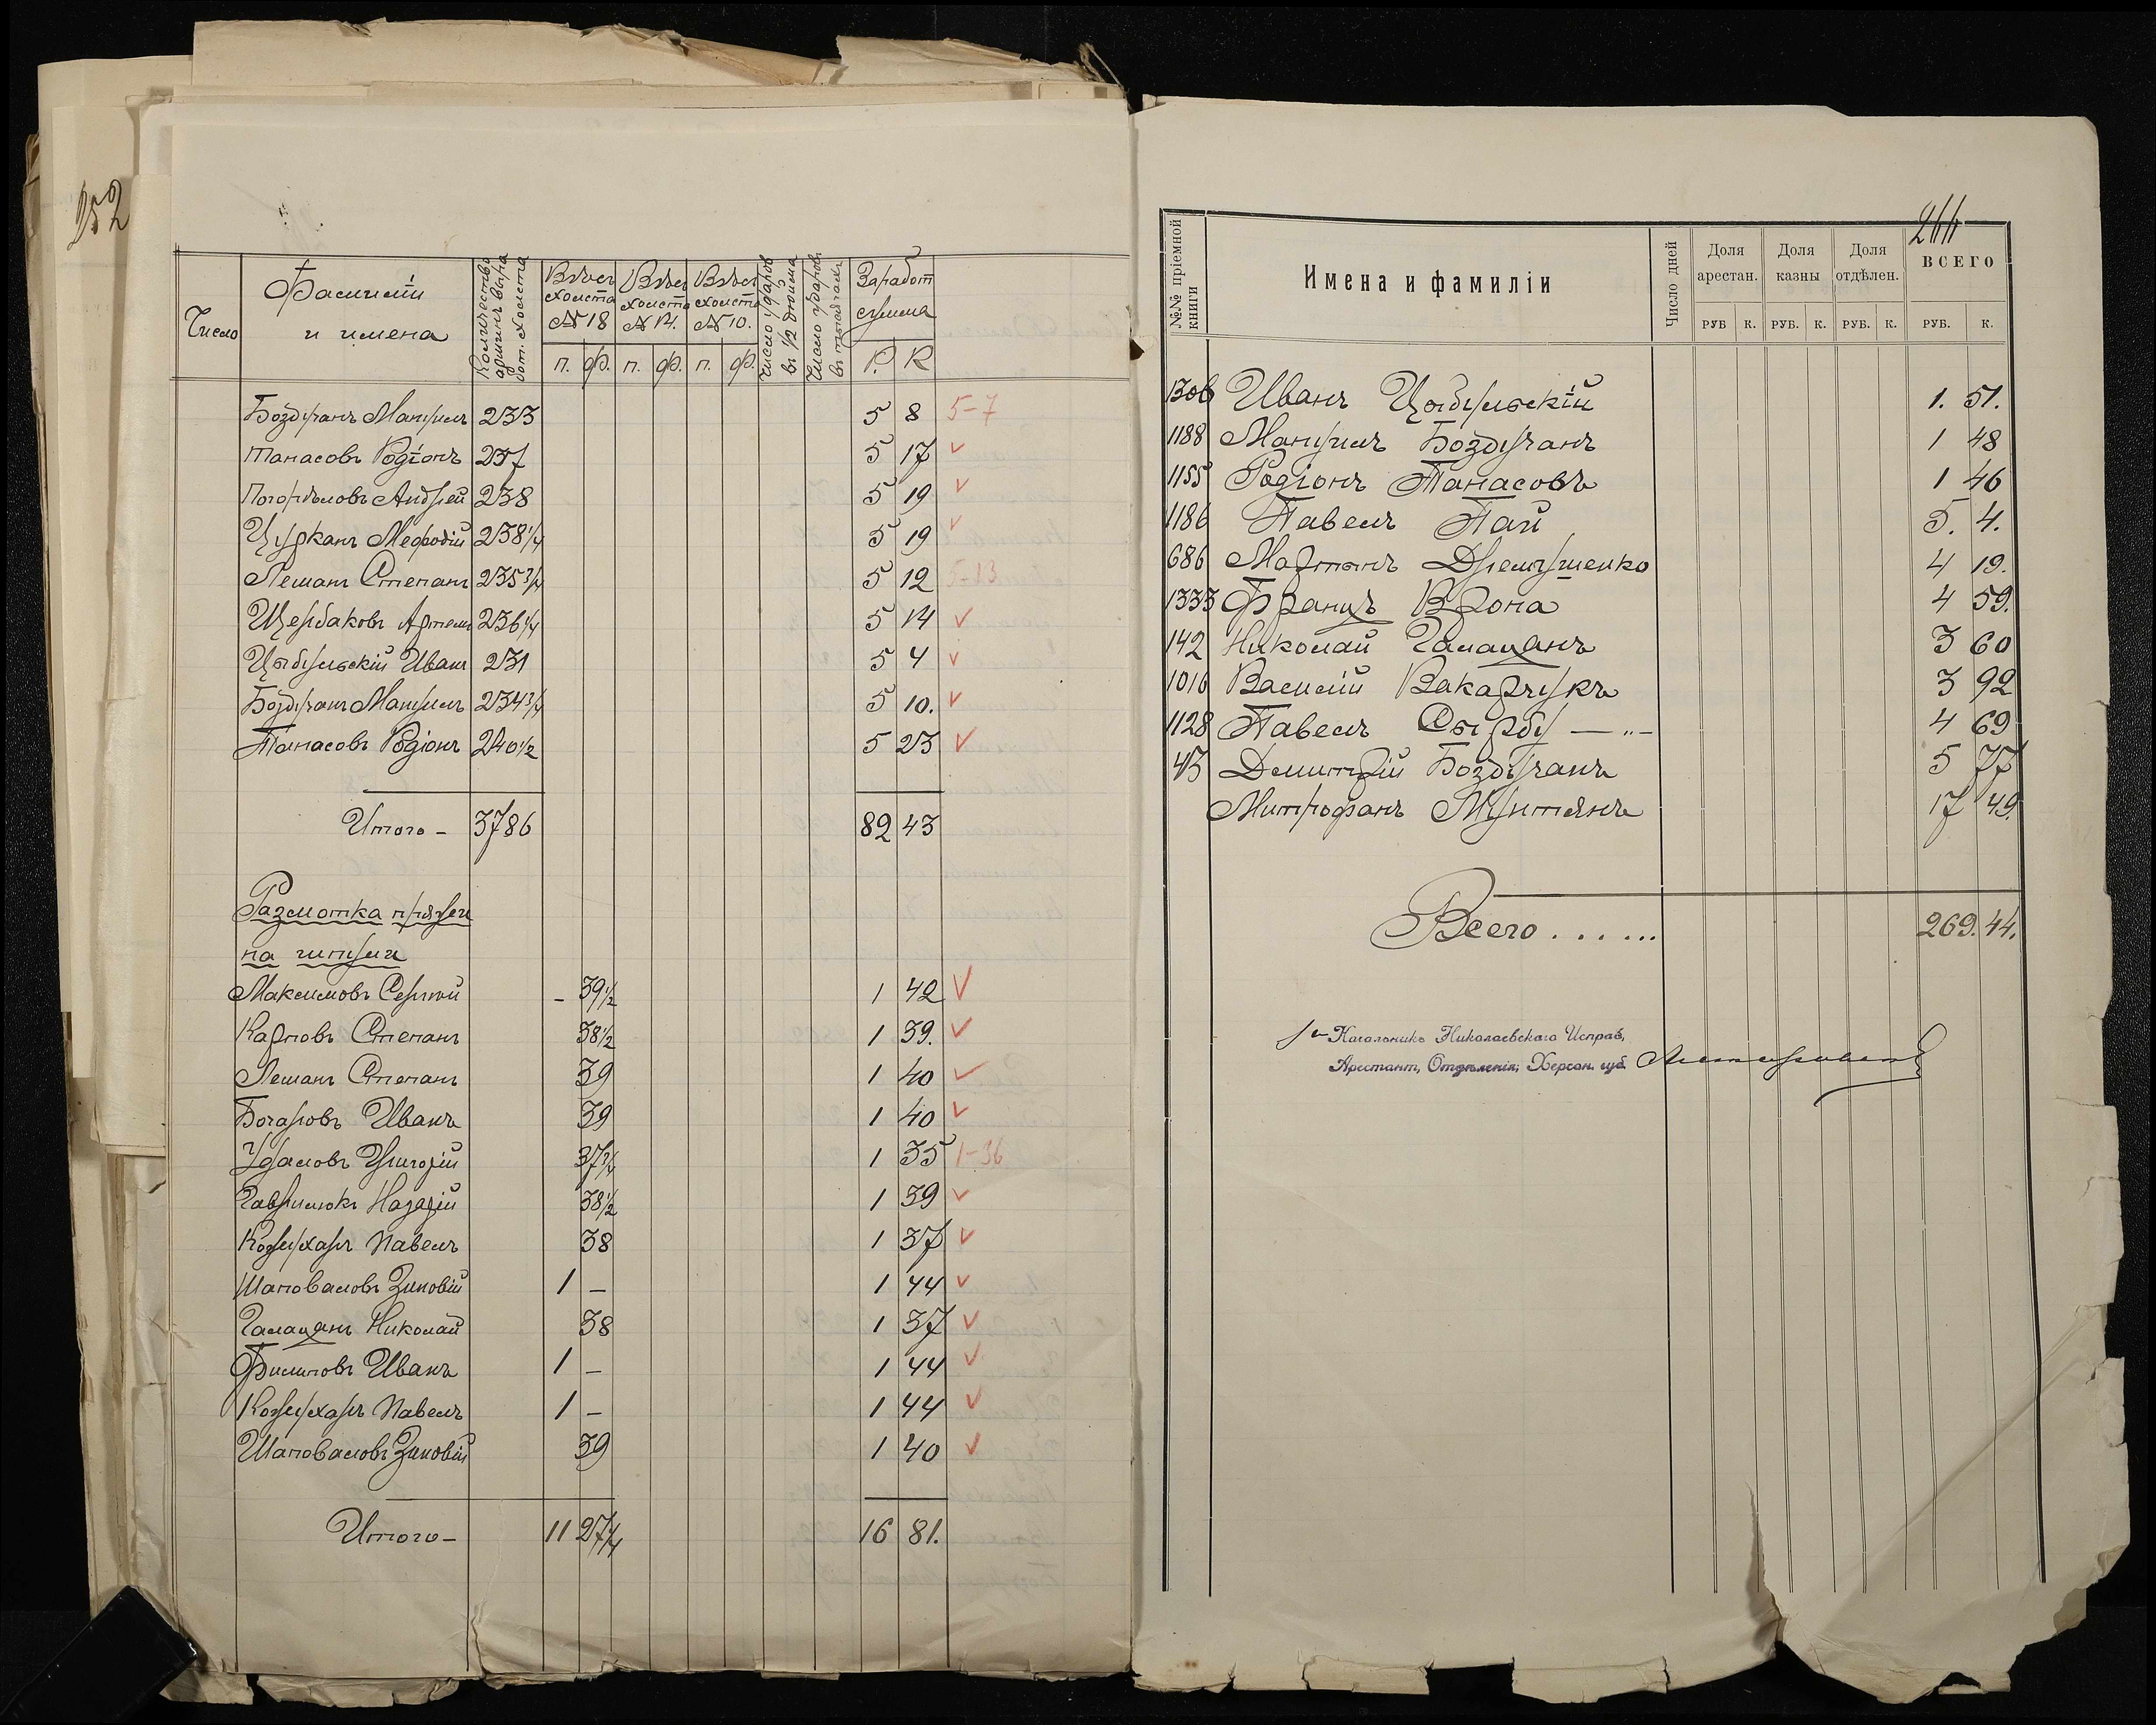 252
Число
Фамиліи и имена
Количество аршинъ выработ. холста
Вѣсъ холста № 18
Вѣсъ холста № 14.
Вѣсъ холста № 10.
Число ударовъ въ 1/2 дюйма
Число ударовъ
Заработ сумма
п. ф. п. ф. п. ф. Р. К
Боздуганъ Мануилъ 233 5 8 5-7
Танасовъ Родіонъ 237 5 17 ✓
Погорѣловъ Андрей 238 5 19 ✓
Цурканъ Мефодій 238 1/4 5 19 ✓
Леманъ Степанъ 235 3/4 5 12 5-13
Щербаковъ Артемъ 236 1/4 5 14 ✓
Цыбульскій Иванъ 231 5 4 ✓
Боздуганъ Мануилъ 234 3/4 5 10. ✓
Танасовъ Родіонъ 240 1/2 5 23 ✓
Итого – 3786 82 43
Размотка пряжи
на шпули
Максимовъ Сергѣй – 39 1/2 1 42 ✓
Карповъ Степанъ 38 1/2 1 39. ✓
Леманъ Степанъ 39 1 40 ✓
Бочаровъ Иванъ 39 1 40 ✓
Удаловъ Григорій 37 3/4 1 35 1-36
Гаврилюкъ Назарій 38 1/2 1 39 ✓
Кожухарь Павелъ 38 1 37 ✓
Шаповаловъ Зиновій 1 – 1 44 ✓
Галацанъ Николай 38 1 37 ✓
Филиповъ Иванъ 1 – 1 44 ✓
Кожухарь Павелъ 1 – 1 44 ✓
Шаповаловъ Зиновій 39 1 40 ✓
Итого – 11 27 1/4 16 81.
266
№№ пріемной книги
Имена и фамиліи
Число дней
Доля арестан.
Доля казны
Доля отдѣлен.
ВСЕГО
РУБ К. РУБ. К. РУБ. К. РУБ. К.
1306 Иванъ Цыбульскій 1. 51.
1188 Мануилъ Боздуганъ 1 48
1155 Родіонъ Танасовъ 1 46
1186 Павелъ Пай 5. 4.
686 Мартынъ Дремлушенко 4 19.
1333 Францъ Врона 4 59.
142 Николай Галацанъ 3 60
1016 Василій Вакарчукъ 3 92
1128 Павелъ Сырбу — „ – 4 69
43 Димитрій Боздуганъ 5 77
Митрофанъ Мунтянъ 17 49.
Всего . . . . . . 269. 44.
Начальникъ Николаевскаго Исправ.
Арестант. Отдѣленія, Херсон. губ.